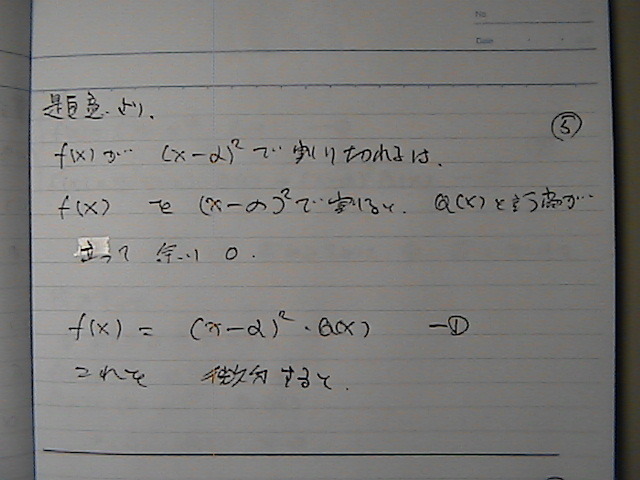 No
Date
題意より、
⑤
f(x)が (x-α)² で割り切れるは、
f(x) を (x-α)² で割ると、Q(x)と言う商が
立って 余り 0.
f(x) = (x-α)²・Q(x) ―①
これを 微分すると、